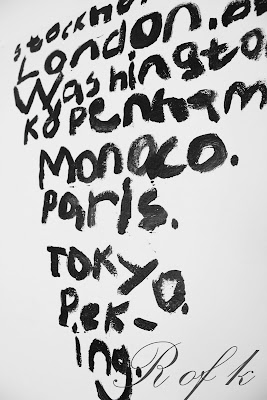 Stockho
London.
Washingto
Kopenham
Monaco.
Paris.
TOKYO.
Pek-
ing.
R of k